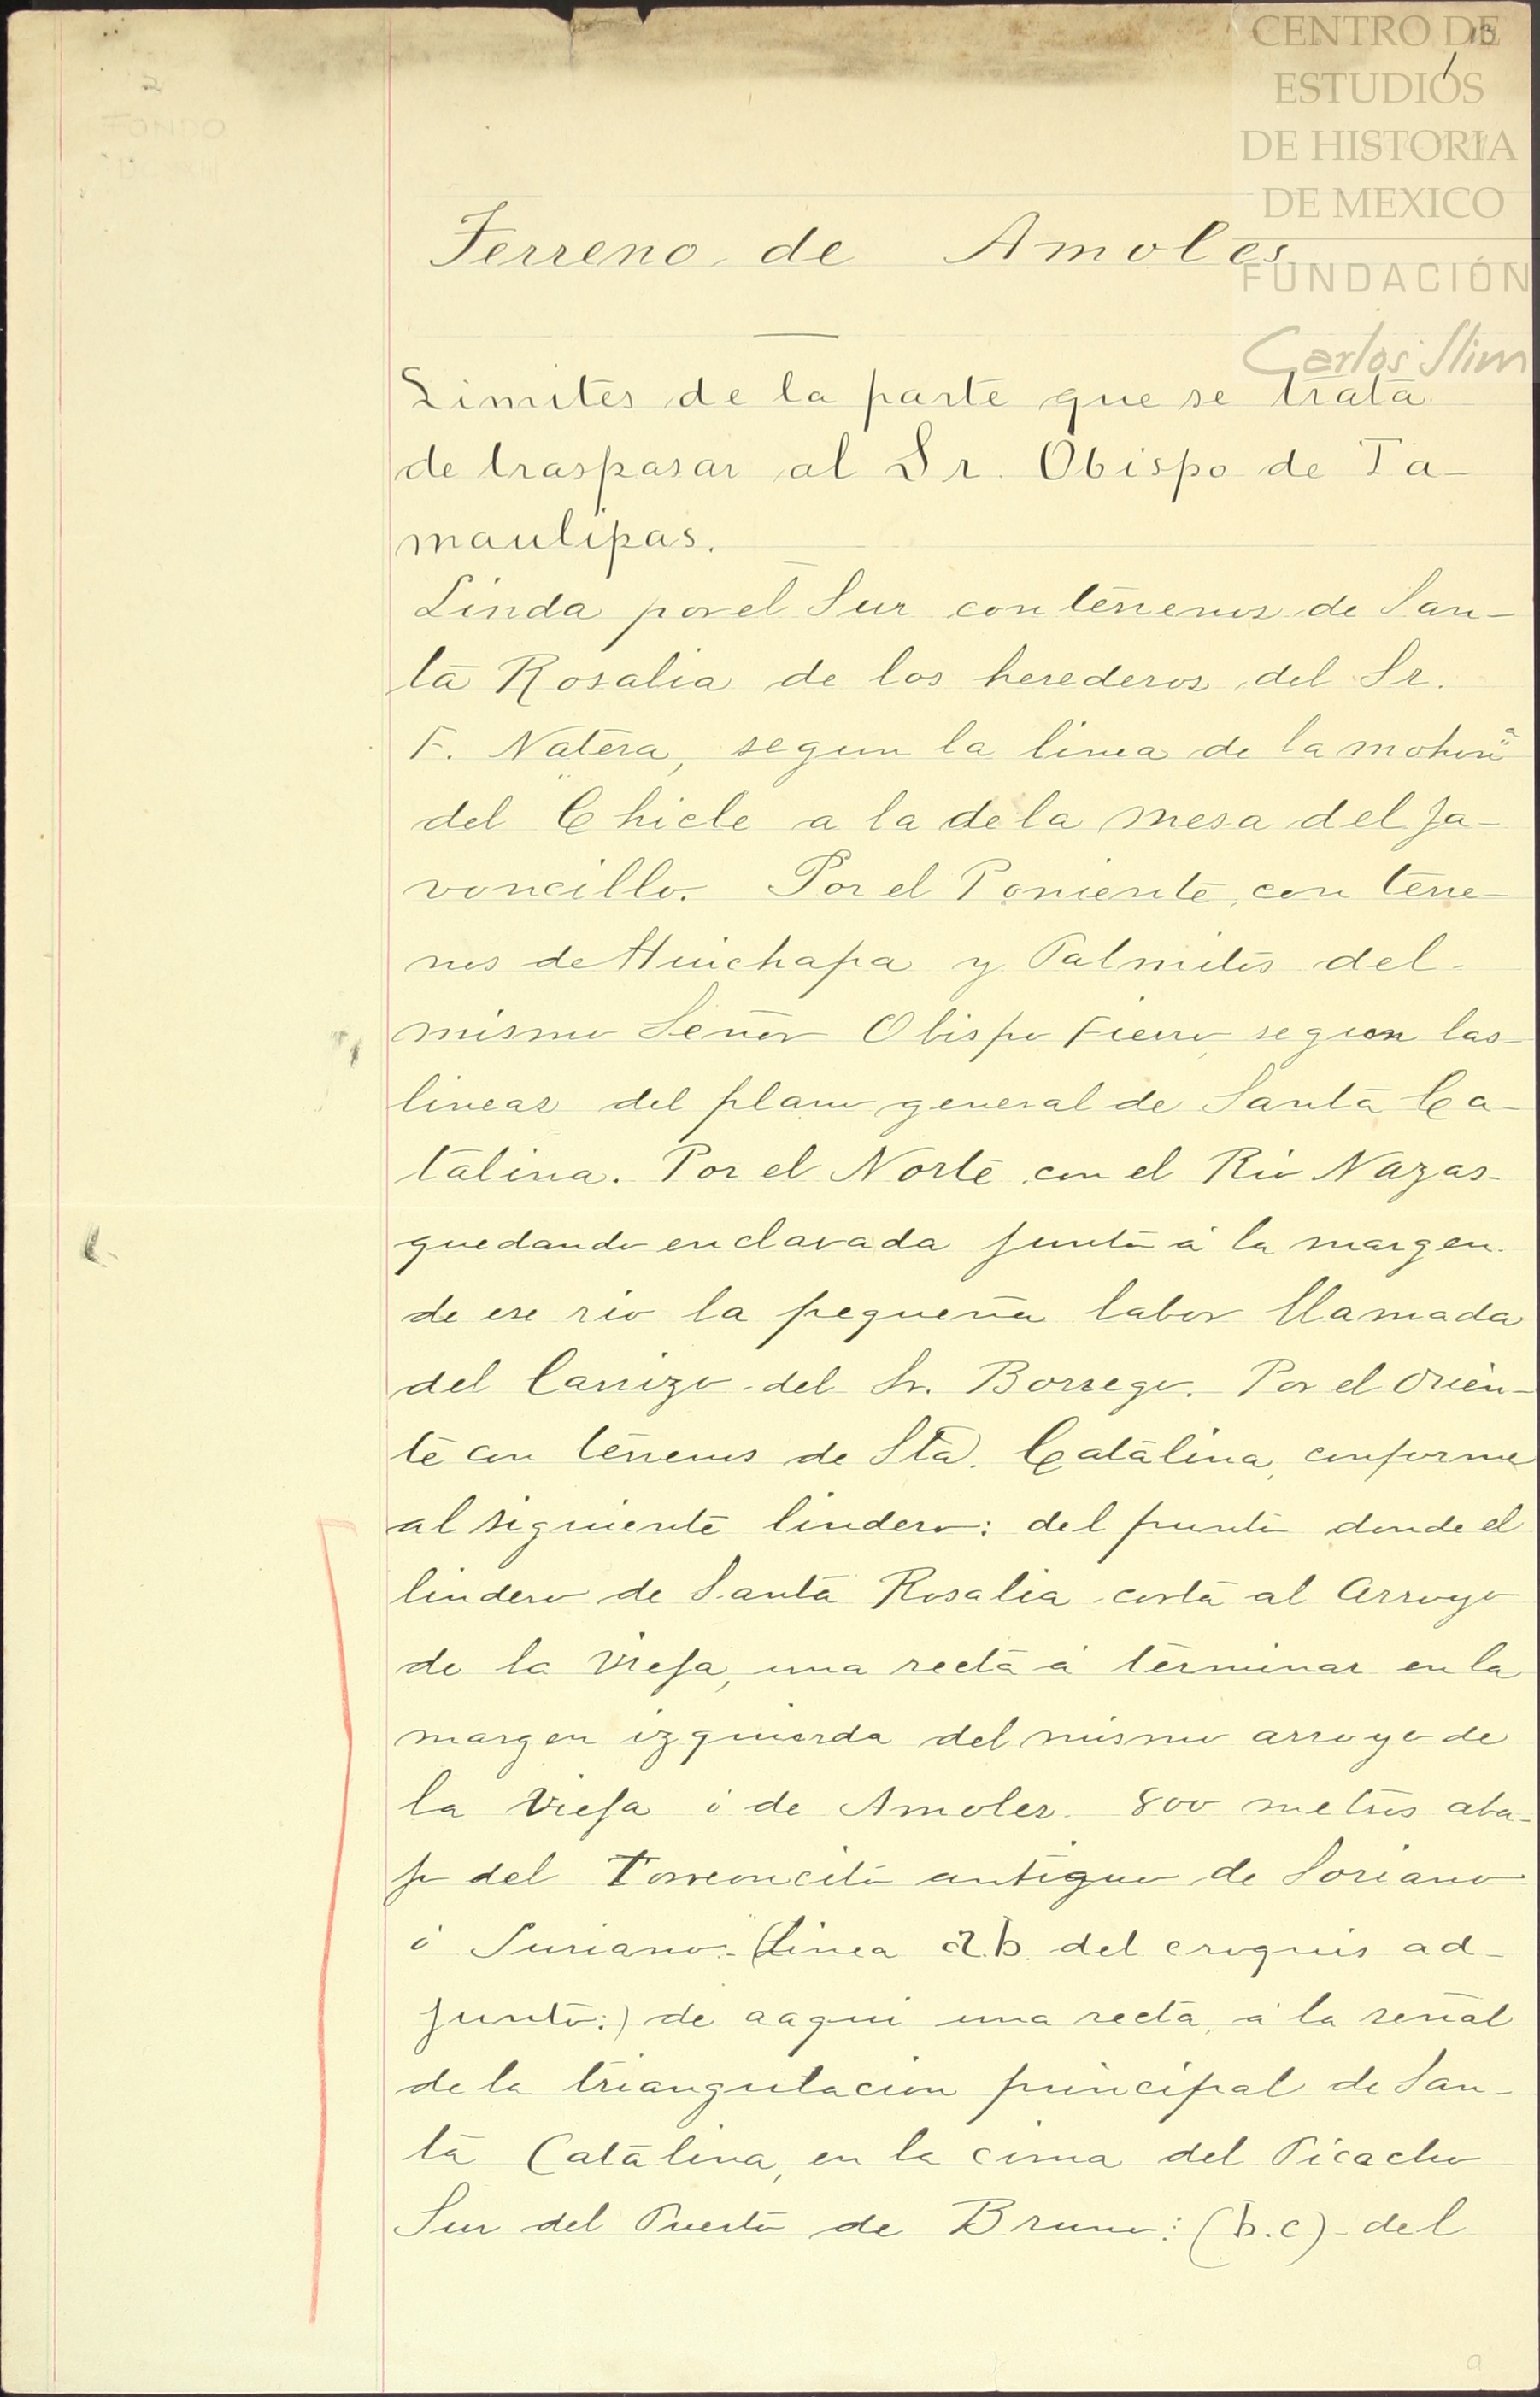 CENTRO DE
ESTUDIOS
DE HISTORIA
DE MEXICO
FUNDACIÓN
Carlos Slim
FONDO
Terreno de Amoles
Limites de la parte que se trata
de traspasar al Sr. Obispo de Ta-
maulipas.
Linda por el Sur con terrenos de San-
ta Rosalia de los herederos del Sr.
F. Natera, segun la linea de la mohonª
del Chicle a la de la mesa del Ja-
voncillo. Por el Poniente, con terre-
nos de Huichapa y Palmitos del
mismo Señor Obispo Fierro, segun las
lineas del plano general de Santa Ca-
talina. Por el Norte con el Rio Nazas
quedando enclavada junto á la margen
de ese rio la pequeña labor llamada
del Carrizo del Sr. Borrego. Por el Orien-
te con terrenos de Sta. Catalina, conforme
al siguiente lindero: del punto donde el
lindero de Santa Rosalia corta al Arroyo
de la Vieja, una recta á terminar en la
margen izquierda del mismo arroyo de
la Vieja ó de Amoles 800 metros aba-
jo del Torreoncito antiguo de Soriano
ó Suriano. (linea a.b. del croquis ad-
junto:) de aaqui una recta, á la señal
de la triangulacion principal de San-
ta Catalina, en la cima del Picacho
Sur del Puerto de Bruno: (b.c) - del